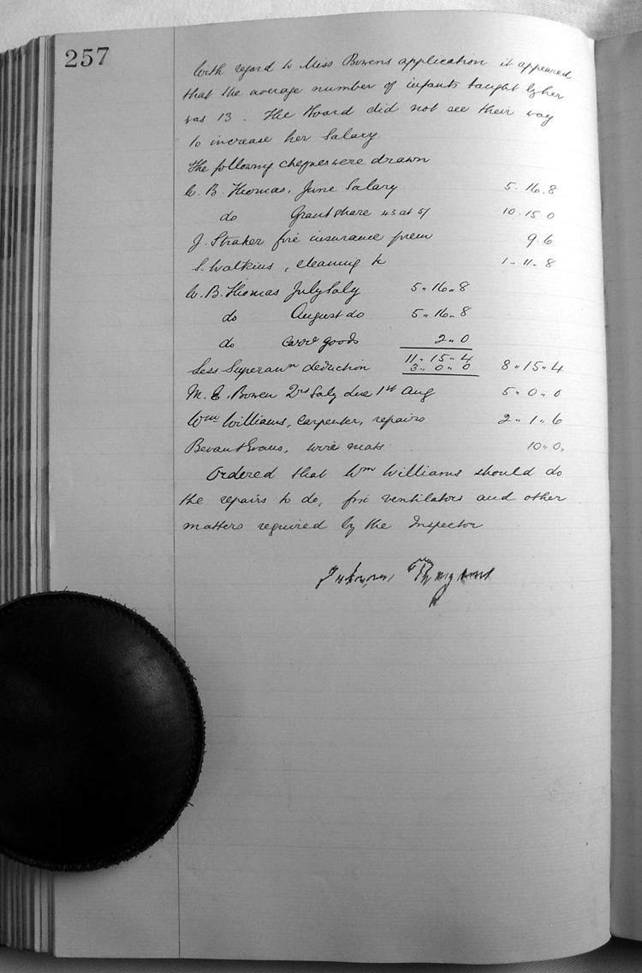 257
With regard to Miss Bowens application it appeared
that the average number of infants taught by her
was 13. The Board did not see their way
to increase her Salary
The following cheques were drawn
W. B. Thomas, June Salary 5.16.8
do Grant share 43 at 5/ 10.15.0
J. Straker fire insurance prem 9.6
S. Watkins, cleaning &c 1-11-8
W. B. Thomas July Saly 5.16.8
do August do 5.16.8
do goods 2.0
11.15.4
Less Superann deduction 3.0.0 8.15.4
M. E. Bowen Qrs Saly due 1st Aug 5.0.0
Wm Williams, Carpenter, repairs 2.1.6
Bevan & Evans, wire mats 10.0.
Ordered that Wm Williams should do
the repairs to do, fix ventilators and other
matters required by the Inspector